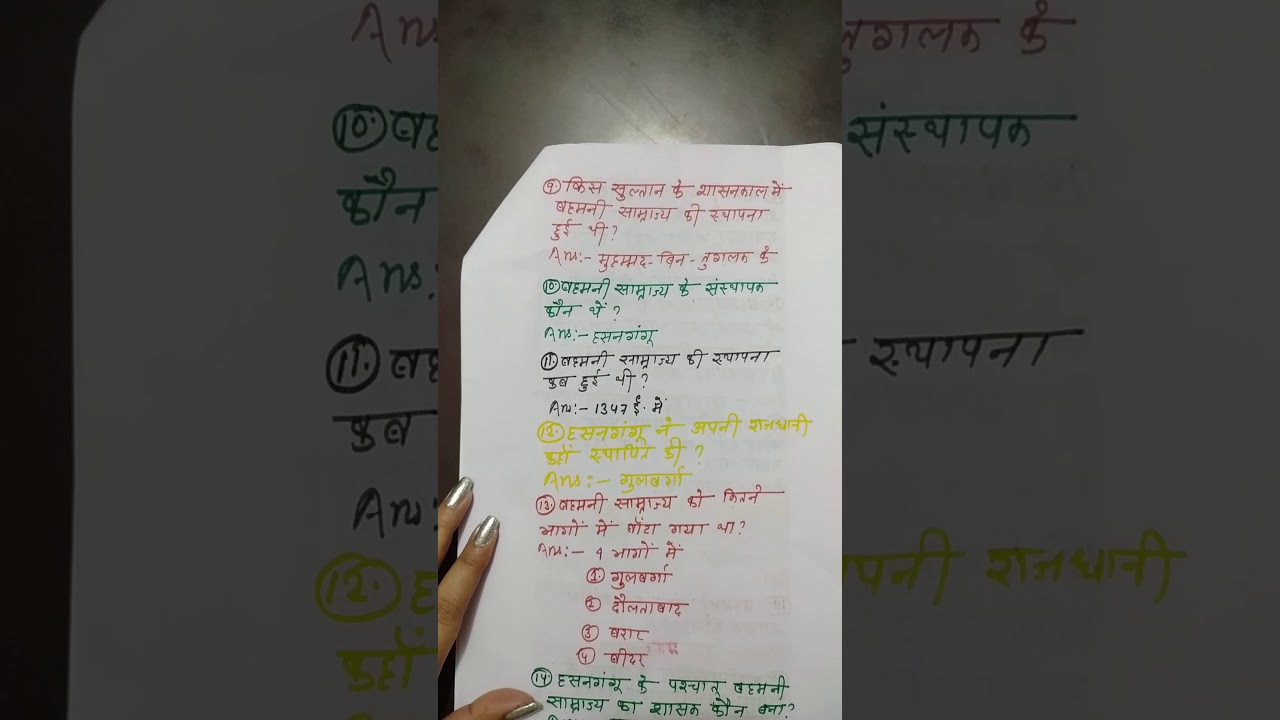 9. किस सुल्तान के शासनकाल में
बहमनी साम्राज्य की स्थापना
हुई थी?
Ans:- मुहम्मद-बिन-तुगलक के
10. बहमनी साम्राज्य के संस्थापक
कौन थें?
Ans:- हसनगंगू
11. बहमनी साम्राज्य की स्थापना
कब हुई थी?
Ans:- 1347 ई. में
12. हसनगंगू ने अपनी राजधानी
कहाँ स्थापित की?
Ans:- गुलबर्गा
13. बहमनी साम्राज्य को कितने
भागों में बाँटा गया था?
Ans:- 4 भागों में
1. गुलबर्गा
2 दौलताबाद
3 बरार
4 बीदर
14 हसनगंगू के पश्चात् बहमनी
साम्राज्य का शासक कौन बना?